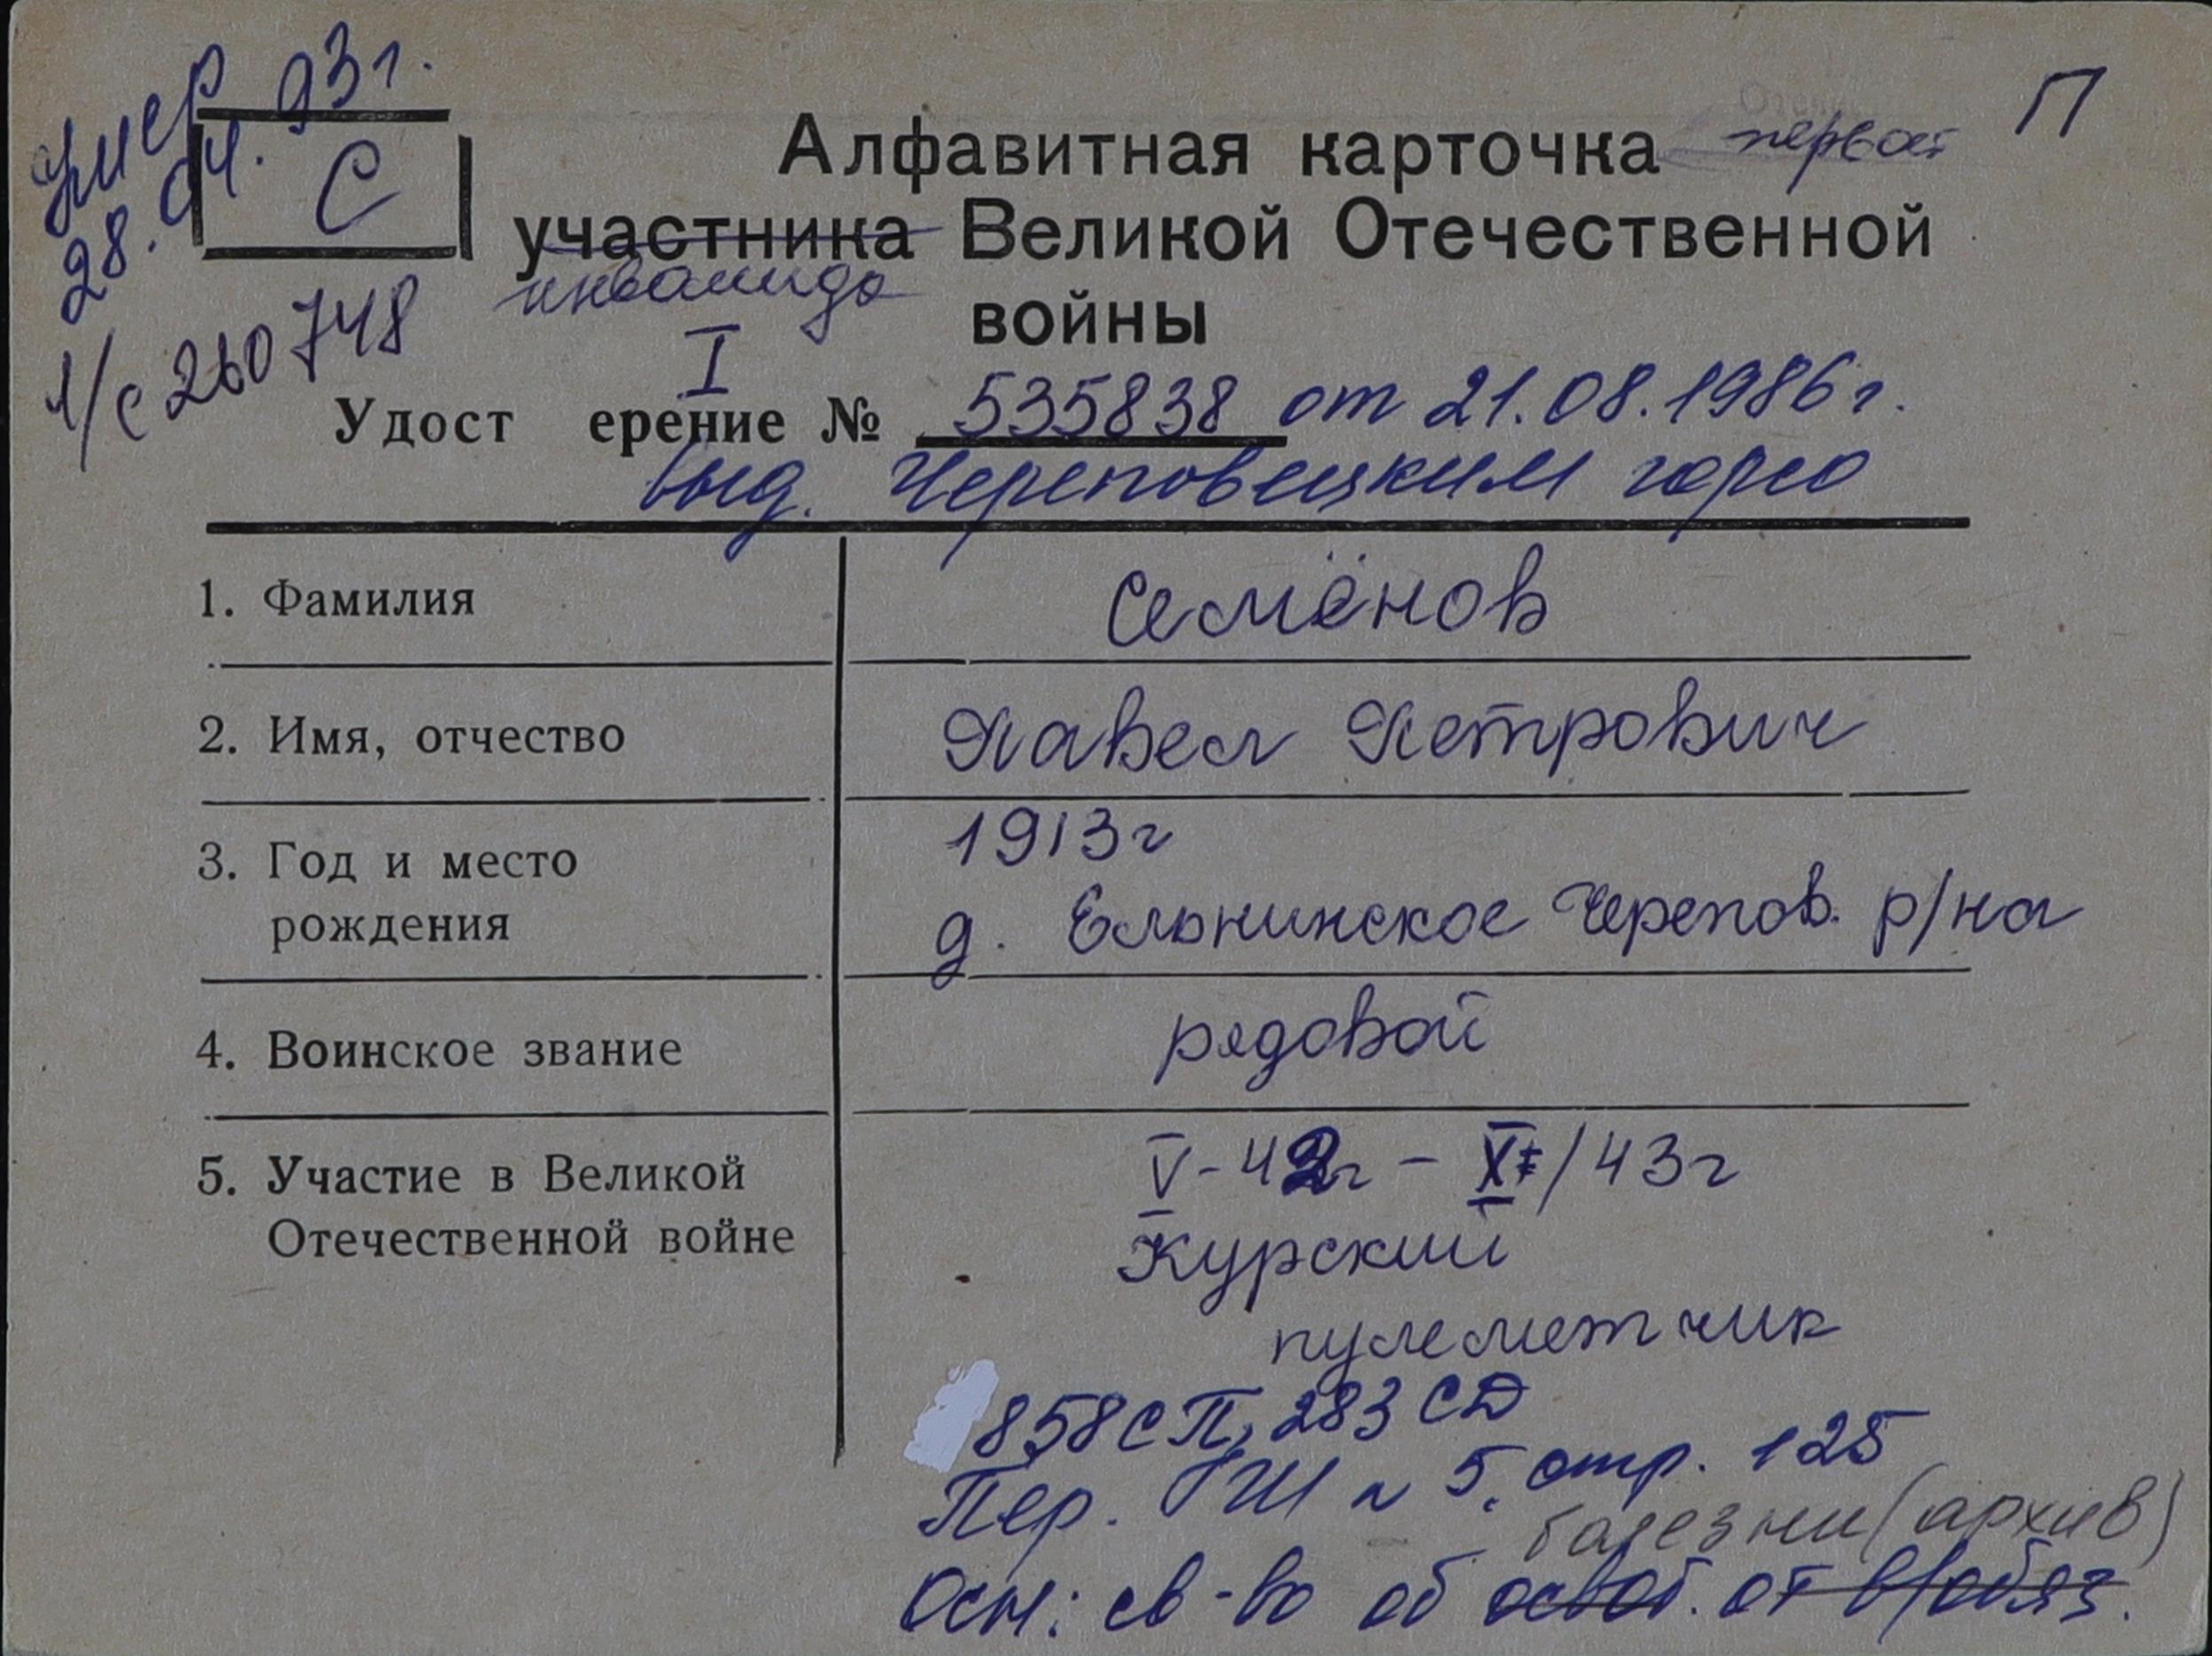 Умер
28.04.93г.
С
1/с 260748
Алфавитная карточка
П
участника Великой Отечественной
инвалида
войны
I
Удост ерение № 535838 от 21.08.1986г.
выд. Череповецким горсо
1. Фамилия Семёнов
2. Имя, отчество Павел Петрович
3. Год и место 1913г
рождения д. Ельнинское Черепов. р/на
4. Воинское звание рядовой
5. Участие в Великой V-42г – XI/43г
Отечественной войне Курский
пулеметчик
858 СП, 283 СД
Пер. ГШ № 5, стр. 125
болезни (архив)
Осн: св-во об освоб. от в/обяз.